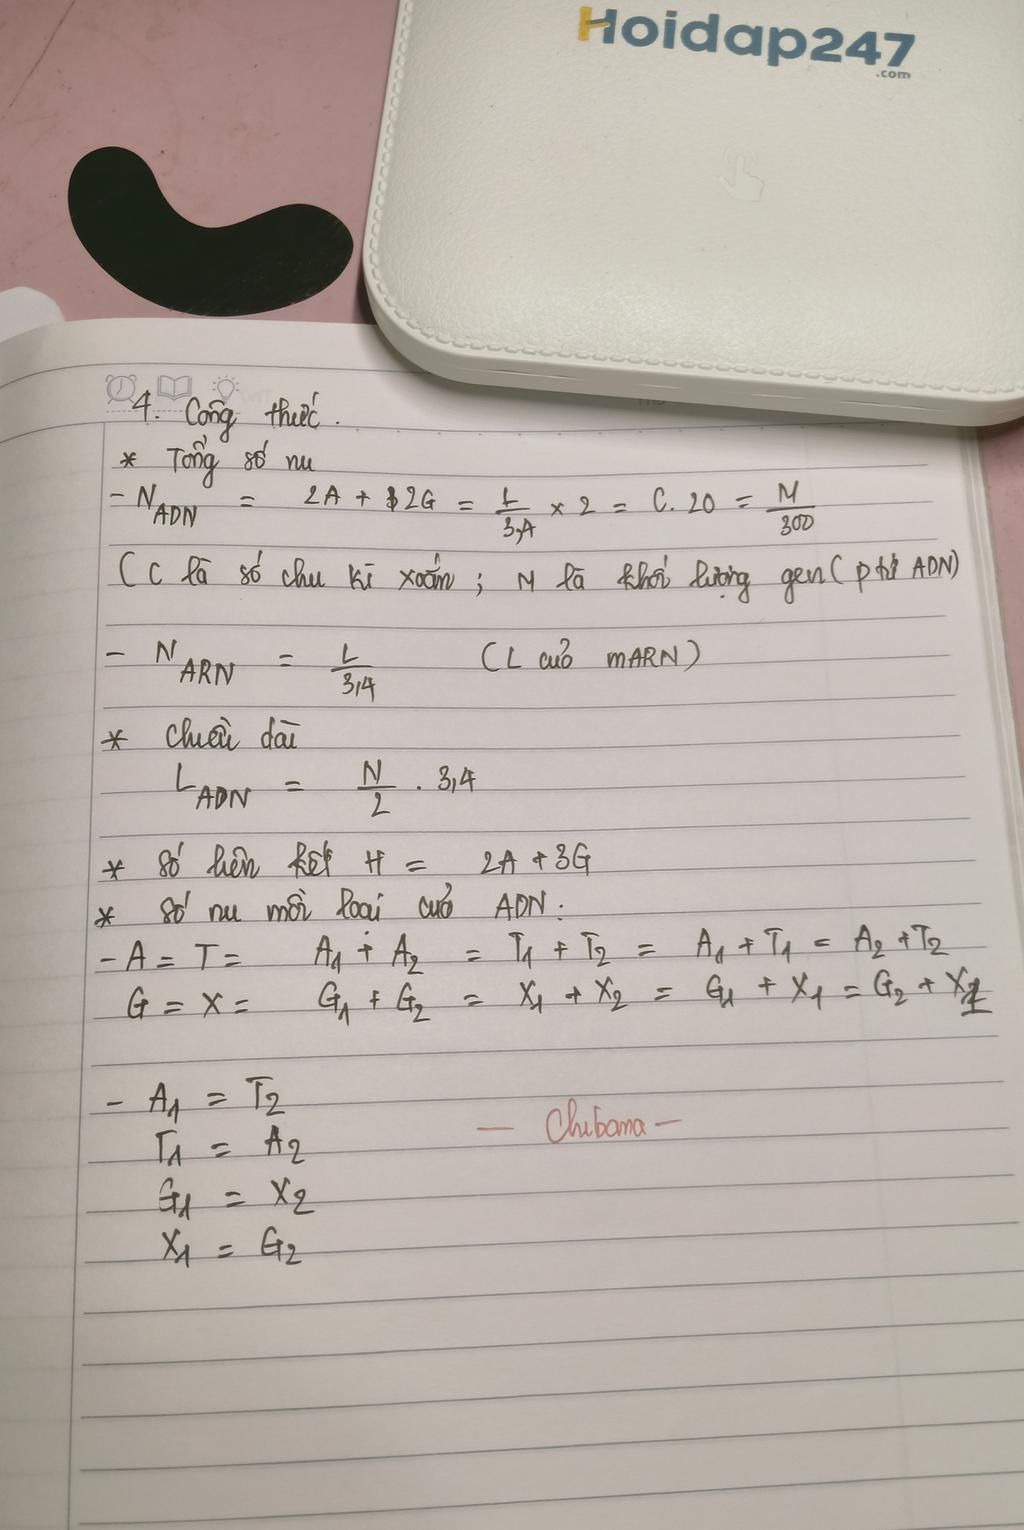 Hoidap247
.com
4. Công thức.
* Tổng số nu
- N_ADN = 2A + 2G = L/3,4 x 2 = C. 20 = M/300
(C là số chu kì xoắn ; M là khối lượng gen (ptử ADN)
- N_ARN = L/3,4 (L của mARN)
* Chiều dài
L_ADN = N/2 . 3,4
* Số liên kết H = 2A + 3G
* Số nu mỗi loại của ADN :
- A = T = A1 + A2 = T1 + T2 = A1 + T1 = A2 + T2
G = X = G1 + G2 = X1 + X2 = G1 + X1 = G2 + X2
- A1 = T2
— Chibana —
T1 = A2
G1 = X2
X1 = G2